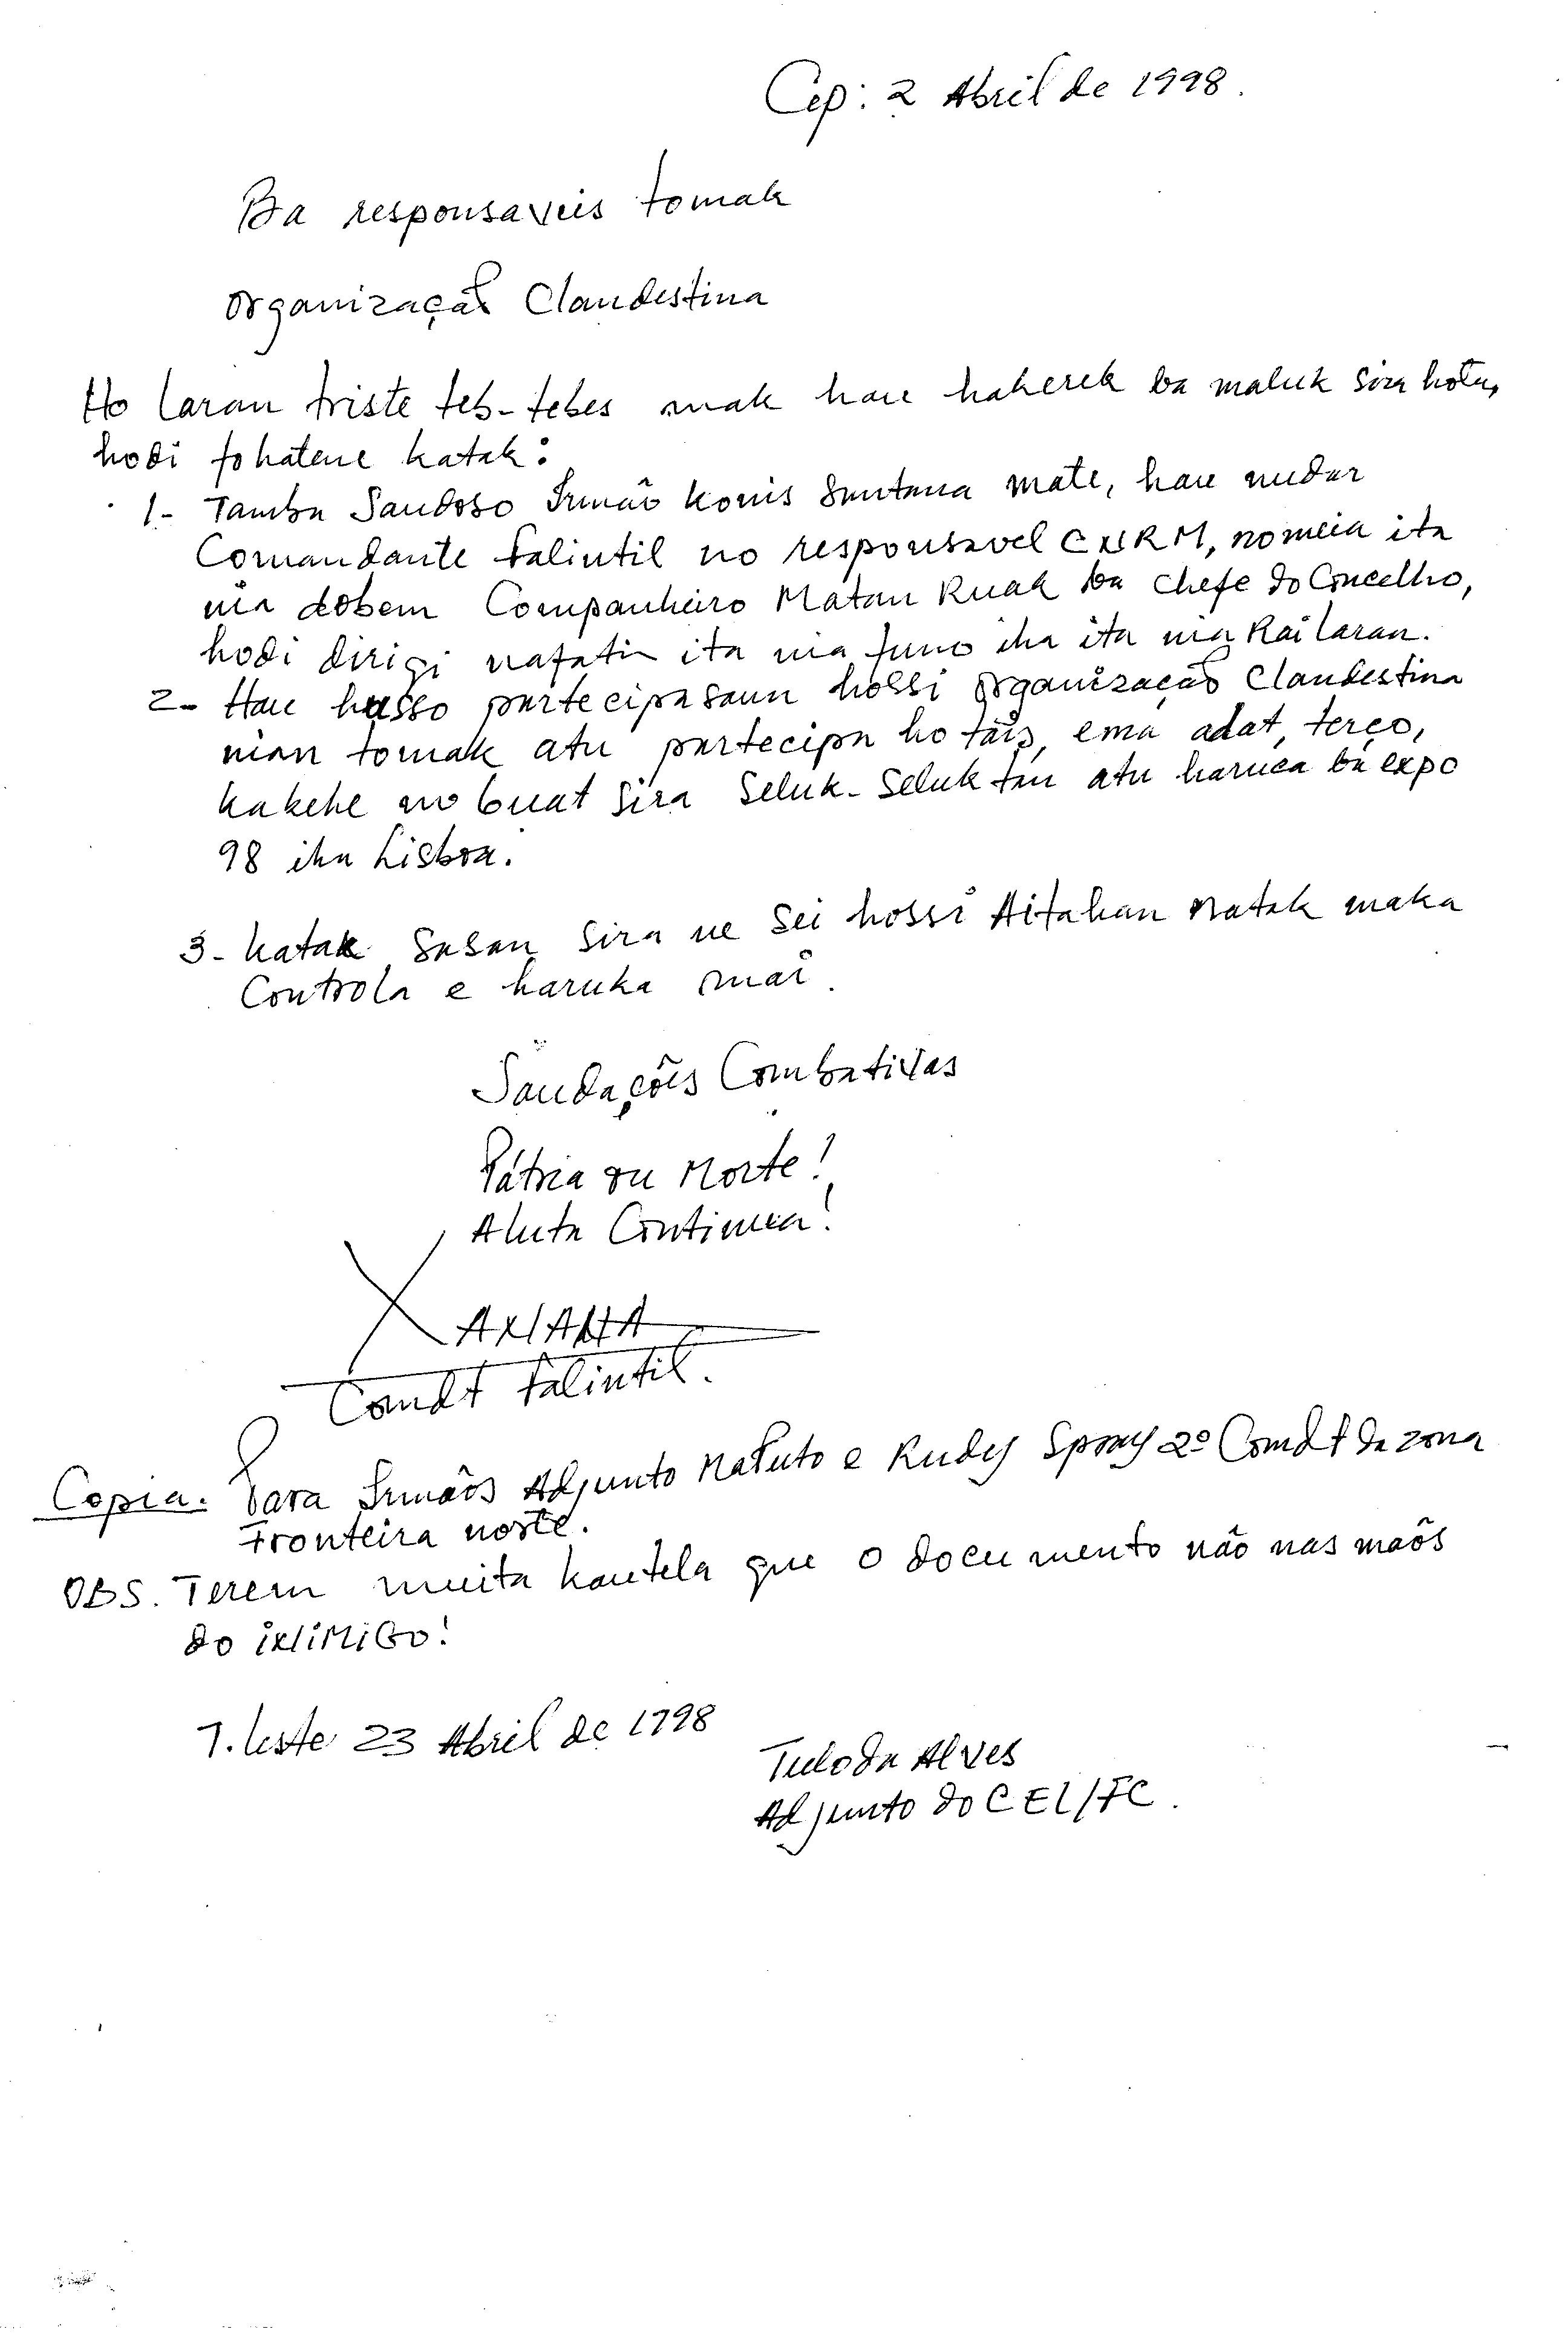 Cip: 2 Abril de 1998.
Ba responsaveis tomak
Organização Clandestina
Ho laran triste teb-tebes mak hau hakerek ba maluk sira hotu,
hodi fohatene katak:
1- Tamba Saudoso Irmão Konis Santana mate, hau nudar
Comandante Falintil no responsavel CNRM, nomeia ita
nia dobem Companheiro Matan Ruak ba Chefe do Concelho,
hodi dirigi nafatin ita nia funo iha ita nia Rai laran.
2- Hau husso partecipasaun hossi Organização Clandestina
nian tomak atu partecipa ho tais, ema adat, terço,
kakehe no buat sira seluk-seluk tan atu haruca ba expo
98 iha Lisboa.
3- Katak sasan sira ne sei hossi Aitahan Matak maka
Controla e haruka mai.
Saudações Combativas
Pátria ou Morte!
A luta Continua!
XANANA
Comdt Falintil.
Copia. Para Irmãos Adjunto Maputo e Rudy Spony 2º Comdt da zona
Fronteira norte.
OBS. Terem muita kautela que o documento não nas mãos
do iNiMiGO!
T. Leste 23 Abril de 1998
Tuloda Alves
Adjunto do CEL/FC.